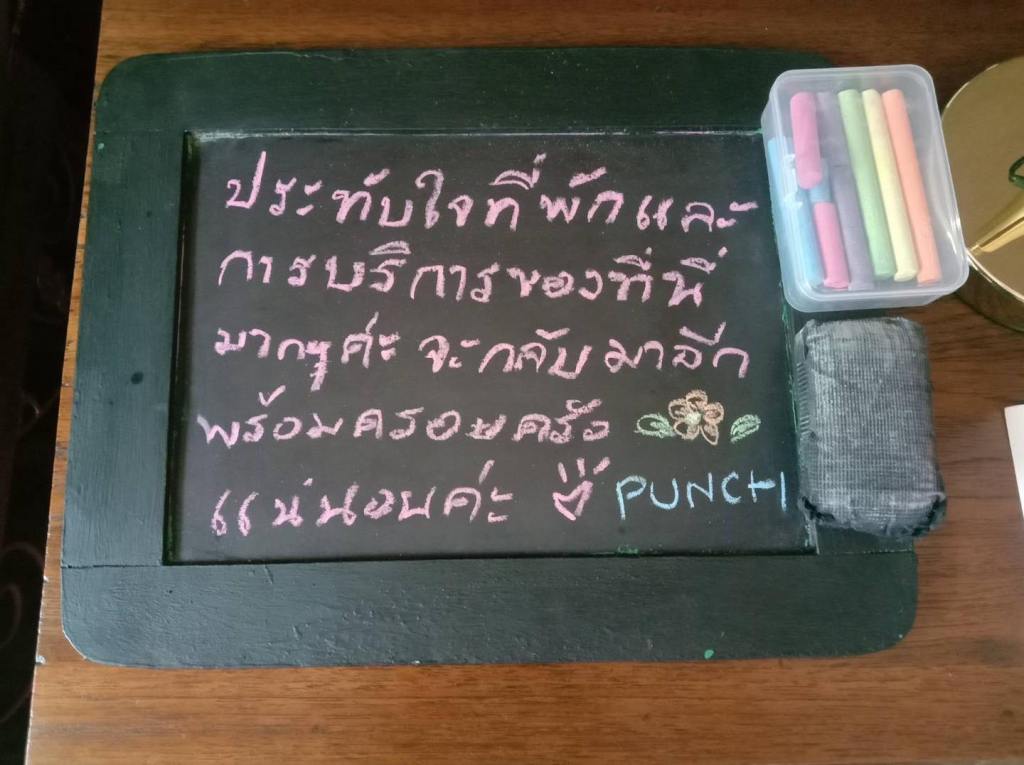 ประทับใจที่พักและ
การบริการของที่นี่
มากๆค่ะ จะกลับมาอีก
พร้อมครอบครัว
แน่นอนค่ะ PUNCH